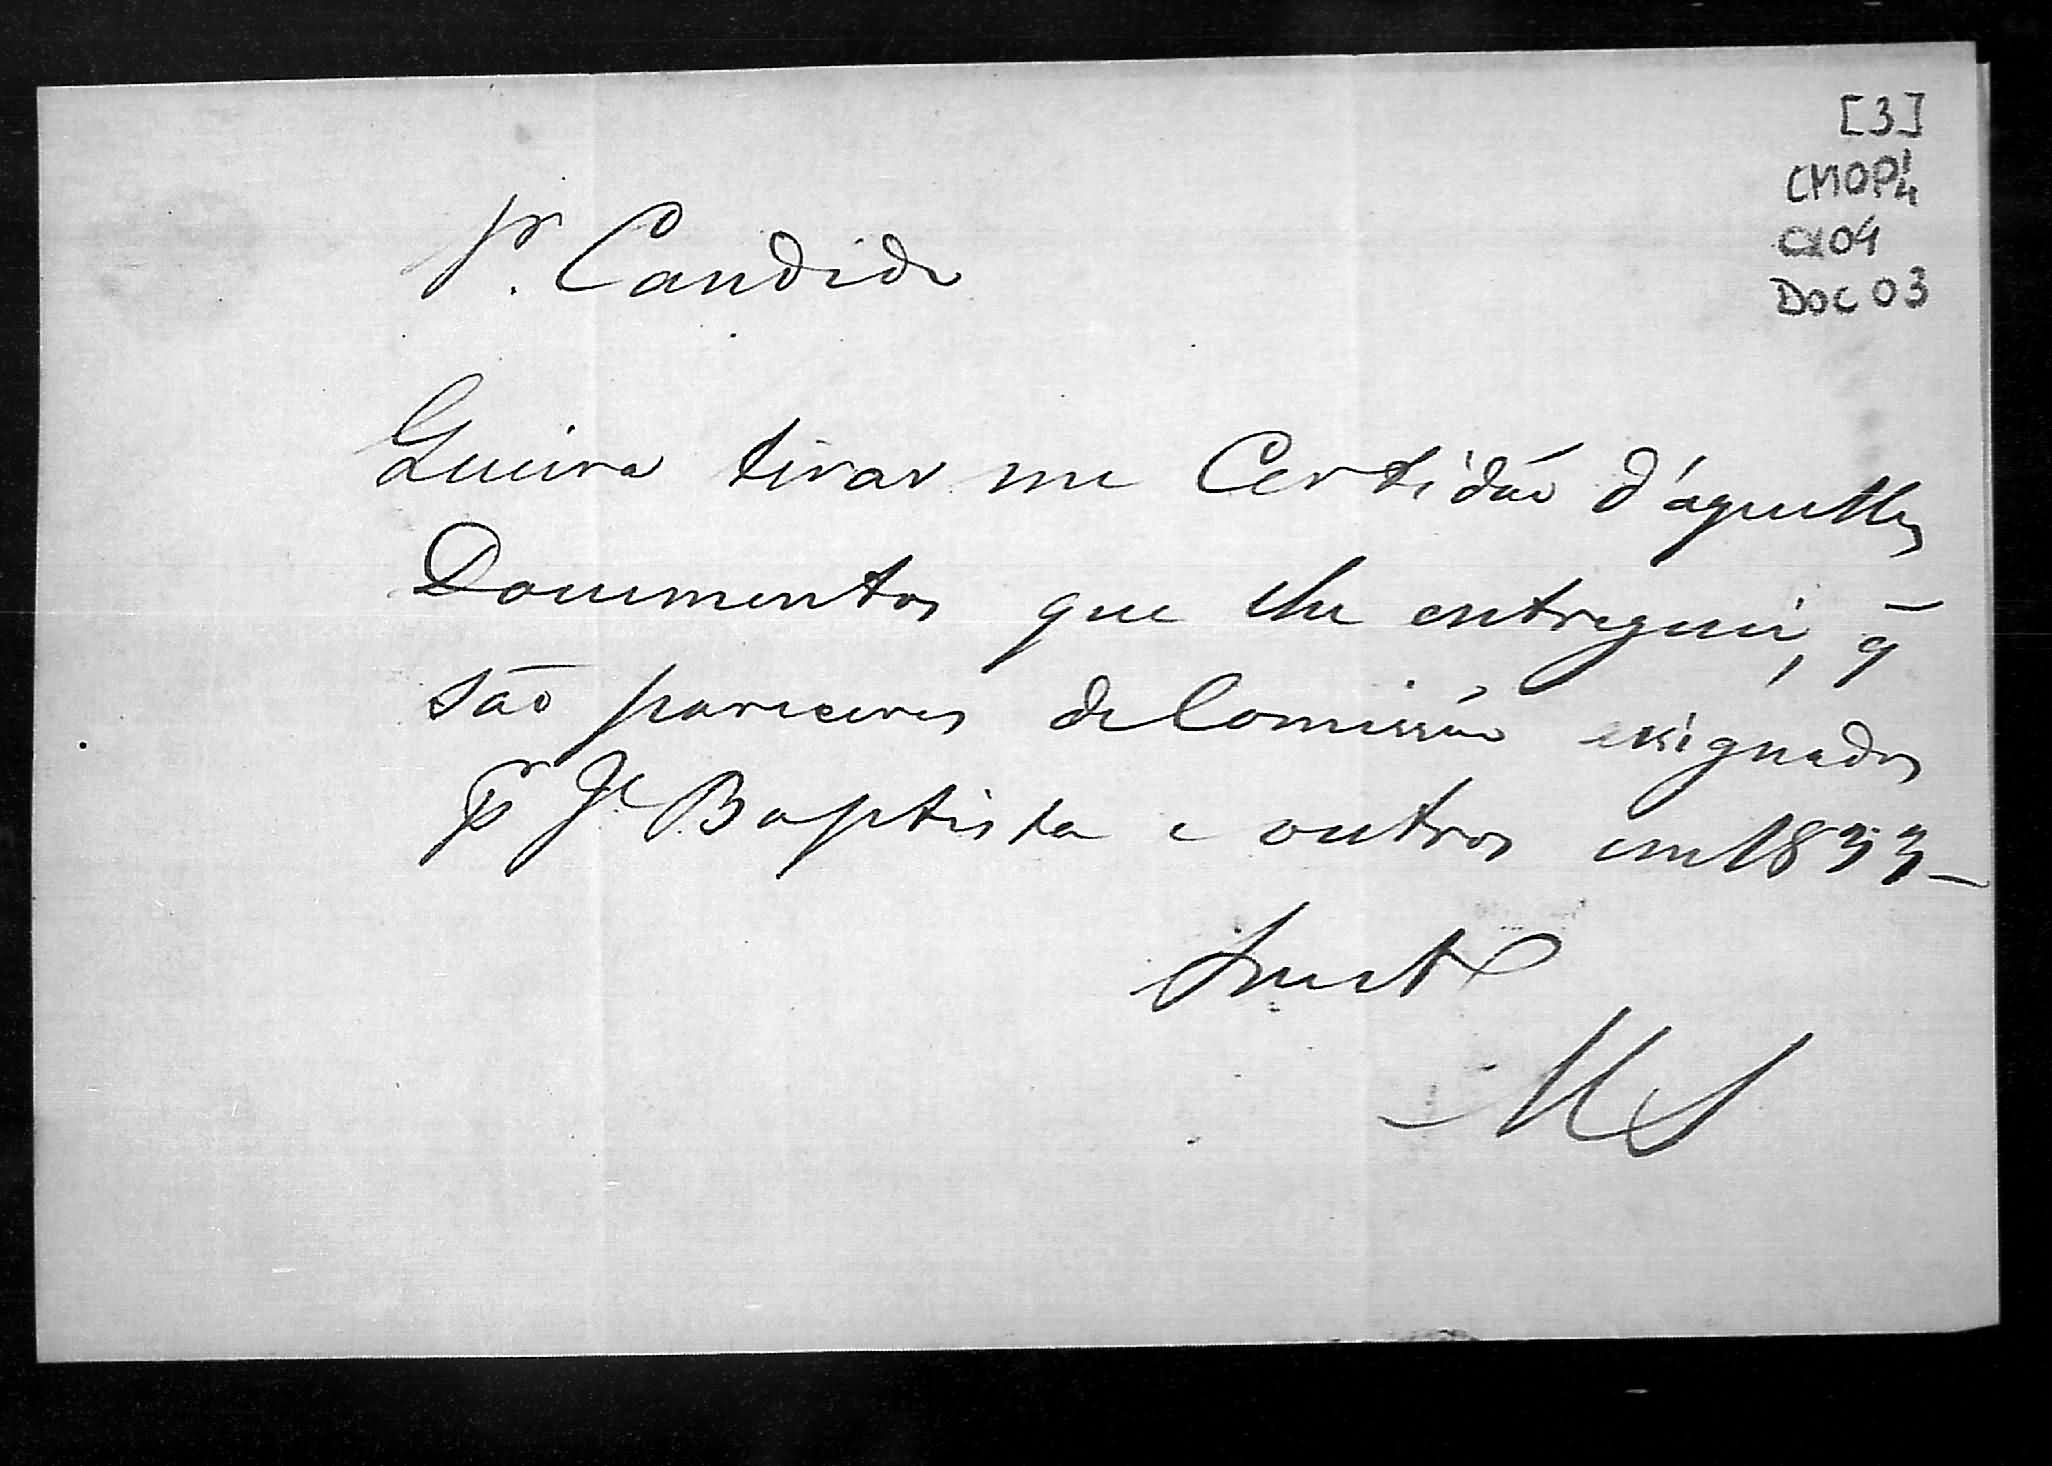 [3]
CMOP 1/4
CX04
DOC 03
Sr. Candido
Queira tirar me Certidão d'aquelles
Documentos que lhe entreguei, q̄
são pareceres de Comissão assignados
pr Je Baptista e outros em 1833 –
MS